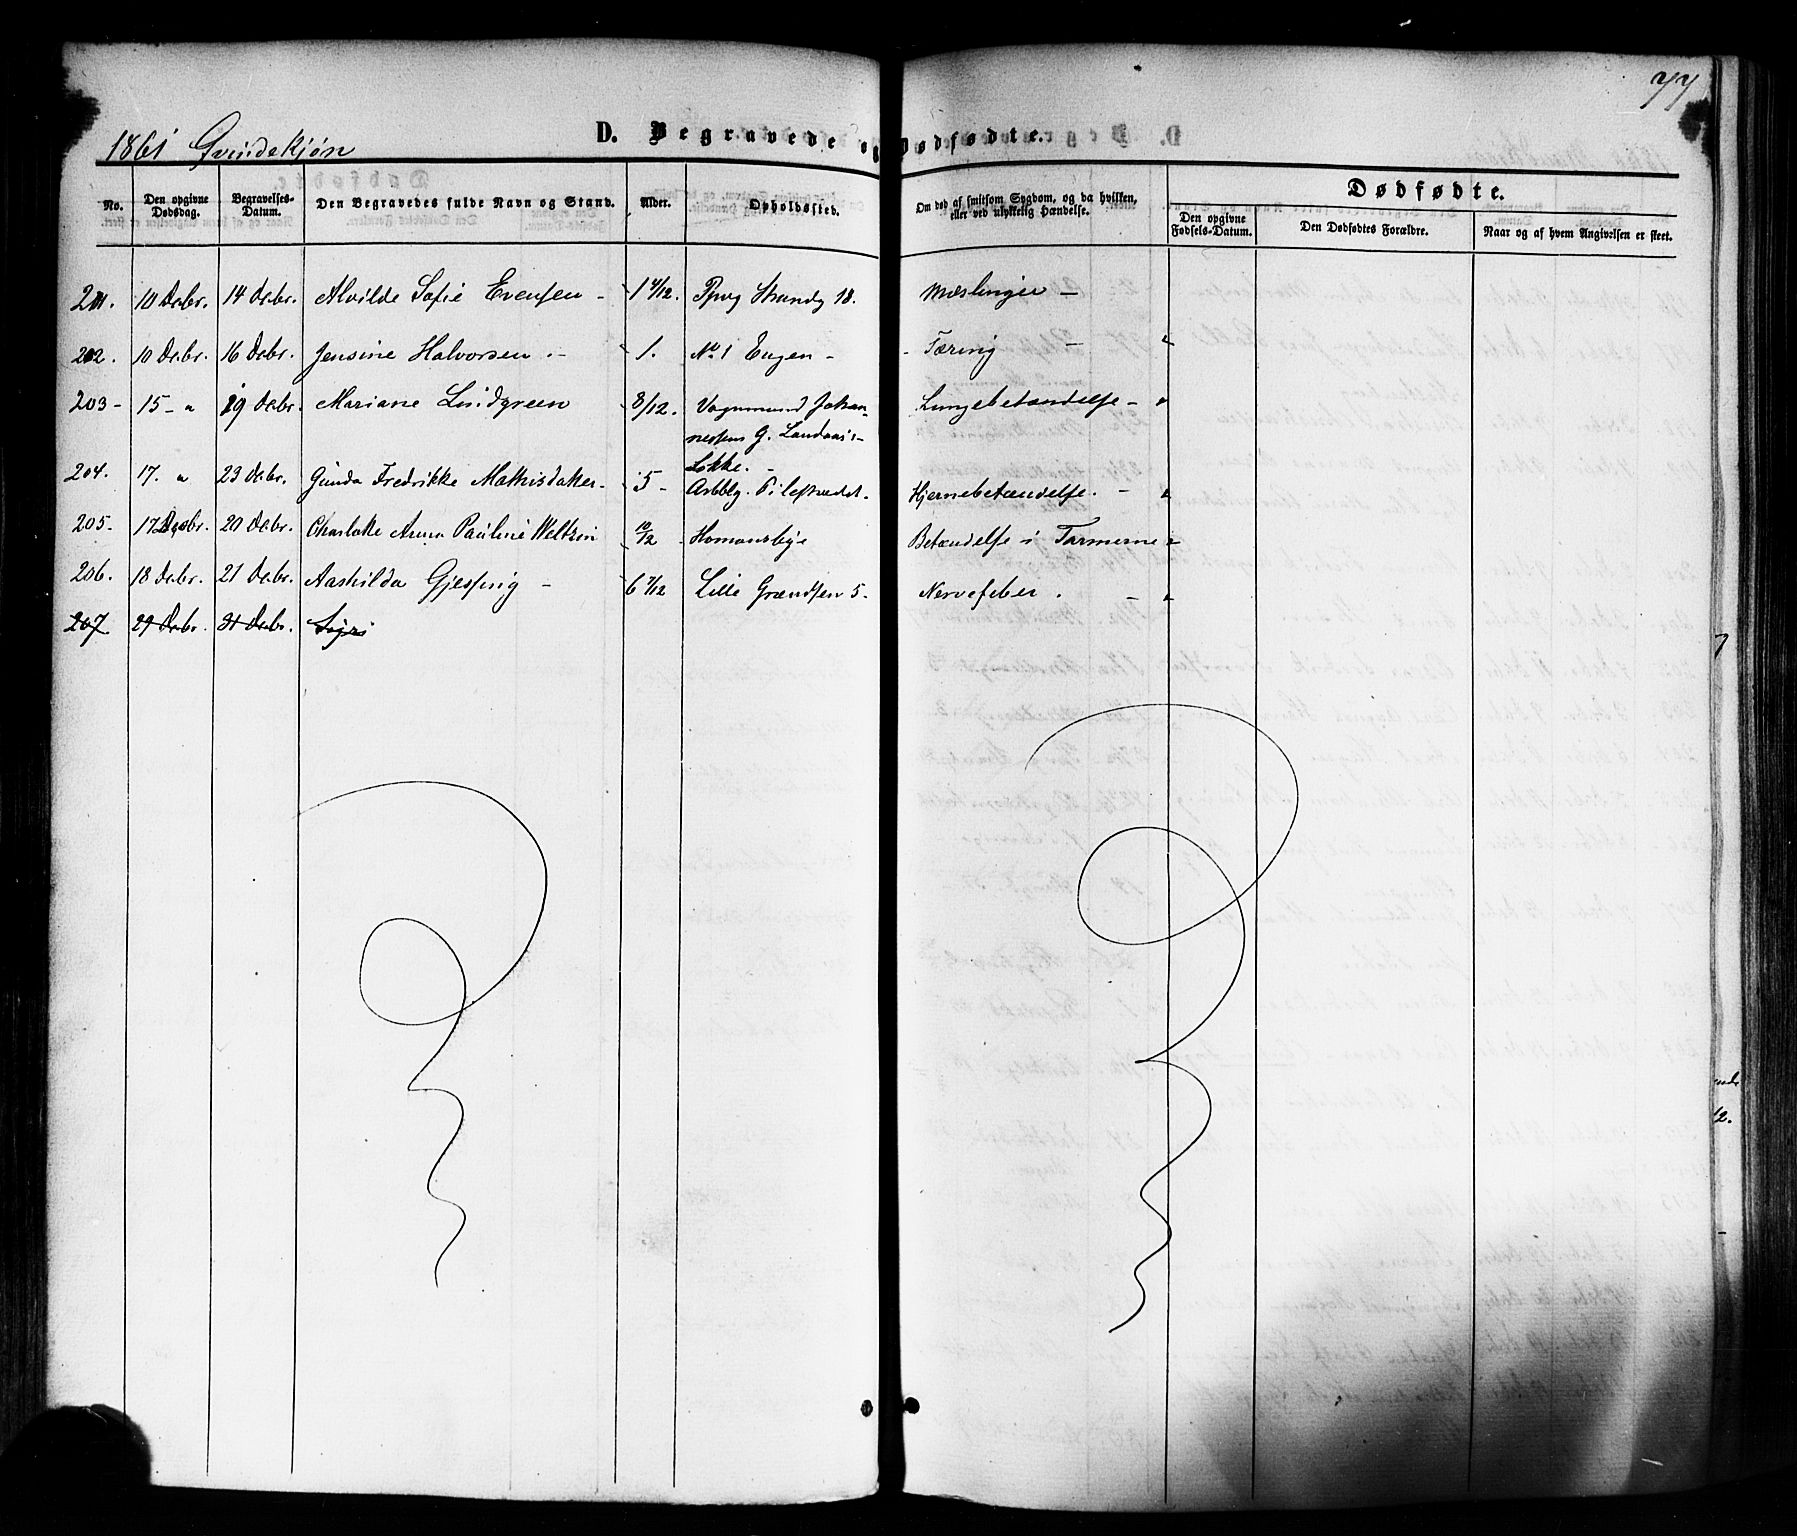 77
1861 Qvindekjøn
D. Begravede og Dødfødte.
No. | Den opgivne Dødsdag. | Begravelses-Datum. | Den Begravedes fulde Navn og Stand. | Alder. | Opholdssted. | Om død af smitsom Sygdom, og da hvilken, eller ved ulykkelig Hændelse. | Dødfødte. | Den opgivne Fødsels-Datum. | Den Dødfødtes Forældre. | Naar og af hvem Angivelsen er skeet.
201. 10 Decbr. 14 Decbr. Alvilde Sofie Evensen - 1 4/12. Ppvg Strandg 18. Mæslinger -
202. 10 Decbr. 16 Decbr. Jensine Halvorsen - 1. No 1 Engen - Tæring - "
203 - 15 - " 19 Decbr. Mariane Lindgreen 8/12. Vognmand Johan- Lungebetændelse - "
nesens G. Landaas's-
Løkke. -
204. 17. " 23 Decbr. Gunda Fredrikke Mathisdatter - 5 - Arbbg. Pilestrædet - Hjernebetændelse. - "
205. 17 Decbr. 20 Decbr. Charlotte Anna Pauline Weltzin 10/12 Homansbye Betændelse i Tarmerne "
206. 18 Decbr. 21 Decbr. Aashilda Gjessing - 6 7/12 Lille Grændsen 5 - Nervefeber. - "
207. 29 Decbr. 31 Decbr.